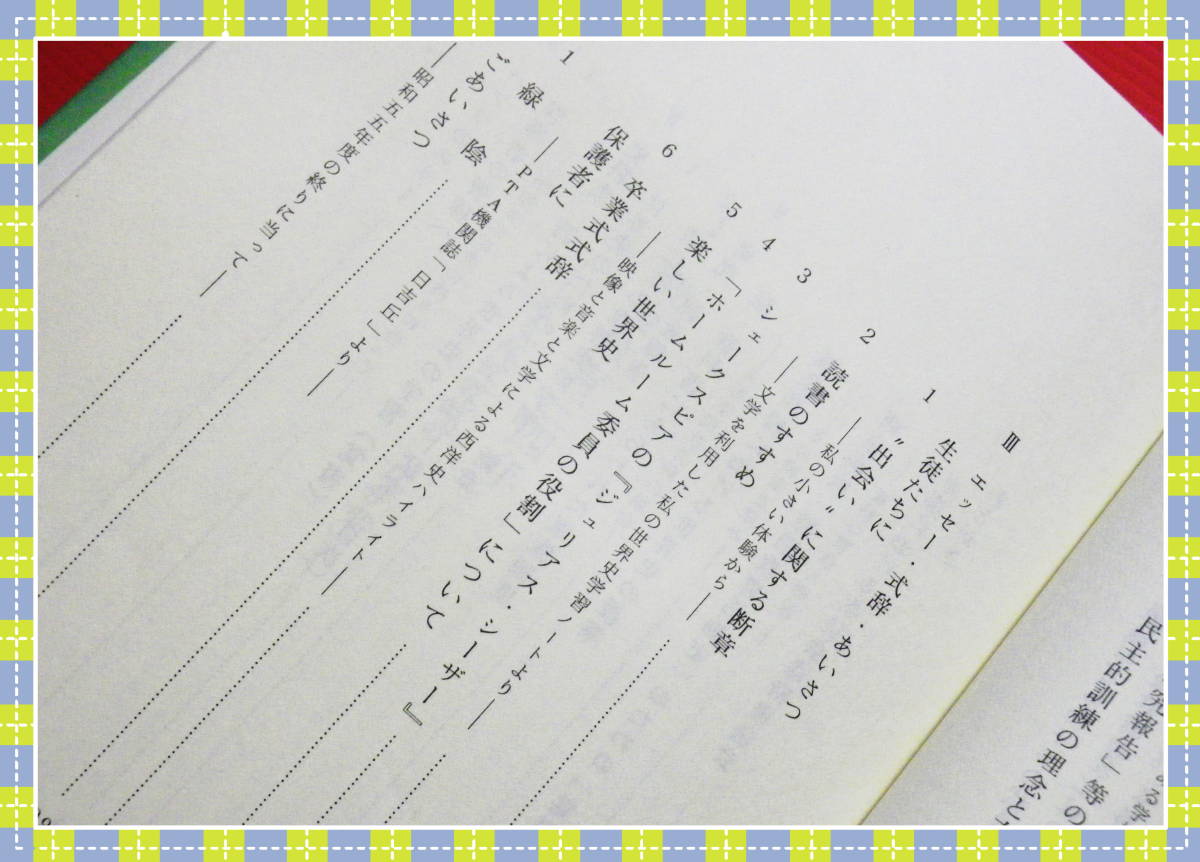 る学
究報告」等の
民主的訓練の理念と
Ⅲ エッセー・式辞・あいさつ
生徒たちに
1 〝出会い〟に関する断章
―私の小さい体験から―
2 読書のすすめ
―文学を利用した私の世界史学習ノートより―
3 シェークスピアの『ジュリアス・シーザー』
4 「ホームルーム委員の役割」について
5 楽しい世界史
―映像と音楽と文学による西洋史ハイライト―
6 卒業式式辞
保護者に
1 緑陰
―PTA機関誌「日吉丘」より―
ごあいさつ
―昭和五五年度の終りに当って―